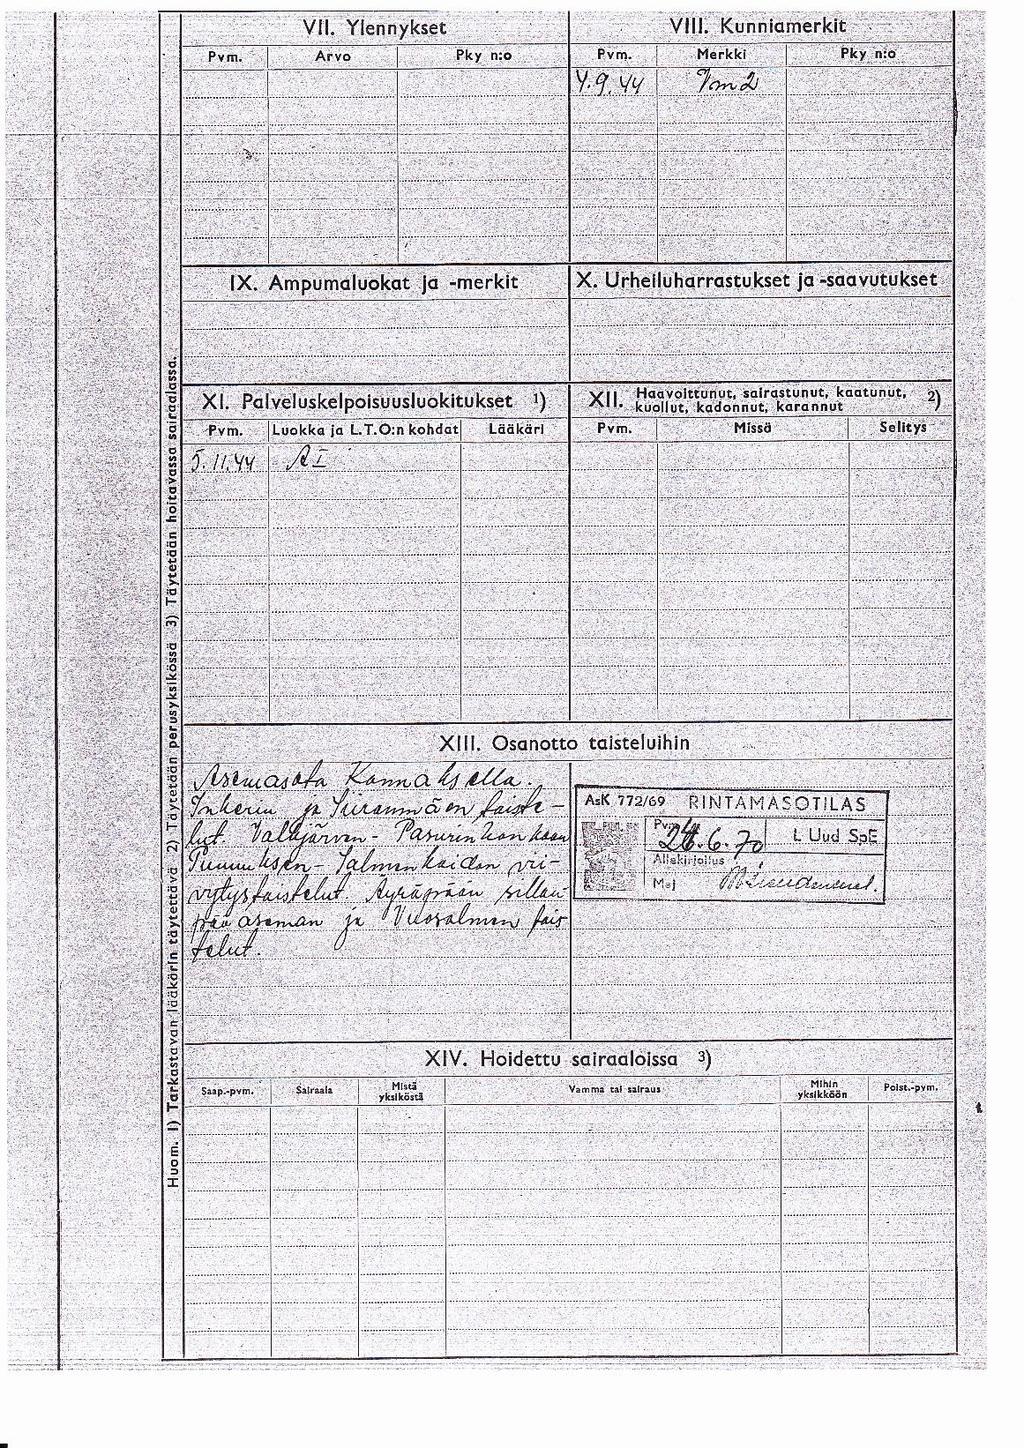 VII. Ylennykset
Pvm. Arvo Pky n:o
VIII. Kunniamerkit
Pvm. Merkki Pky n:o
4.9.44 Vm2
IX. Ampumaluokat ja -merkit
X. Urheiluharrastukset ja -saavutukset
XI. Palveluskelpoisuusluokitukset 1)
Pvm. Luokka ja L.T.O:n kohdat Lääkäri
5.11.44 AI
XII. Haavoittunut, sairastunut, kaatunut, kuollut, kadonnut, karannut 2)
Pvm. Missä Selitys
XIII. Osanotto taisteluihin
Asemasota Kannaksella.
Inkerin ja Siiranmäen taiste-
lut. Valkjärven-Pasurinkankaan
Punnuksen-Salmenkaidan vii-
vytystaistelut. Äyräpään sillan-
pääaseman ja Vuosalmen tais
telut.
AsK 772/69 RINTAMASOTILAS
Pvm 24.6.70 L Uud SpE
Allekirjoitus
Maj
XIV. Hoidettu sairaaloissa 3)
Saap.-pvm. Sairaala Mistä yksiköstä Vamma tai sairaus Mihin yksikköön Poist.-pvm.
Huom. 1) Tarkastavan lääkärin täytettävä 2) Täytetään perusyksikössä 3) Täytetään hoitavassa sairaalassa.